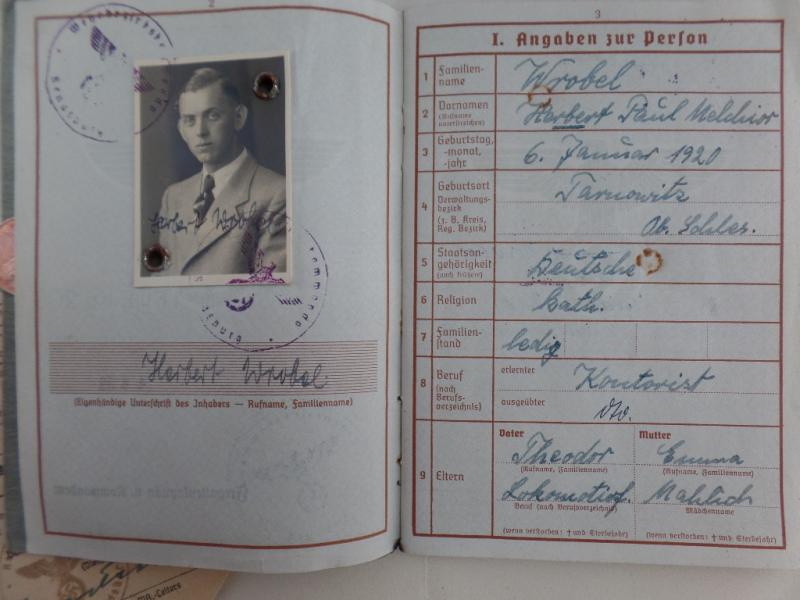 2
Herbert Wrobel
Herbert Wrobel
(Eigenhändige Unterschrift des Inhabers — Rufname, Familienname)
3
I. Angaben zur Person
1 Familien-
name
Wrobel
2 Vornamen
(Rufname
unterstreichen)
Herbert Paul Melchior
3 Geburtstag,
-monat,
-jahr
6. Januar 1920
4 Geburtsort
Verwaltungs-
bezirk
(z. B. Kreis,
Reg. Bezirk)
Tarnowitz
Ob. Schles.
5 Staatsan-
gehörigkeit
(auch frühere)
Deutsche
6 Religion
kath.
7 Familien-
stand
ledig
8 Beruf
(nach
Berufs-
verzeichnis)
erlernter
Kontorist
ausgeübter
9 Eltern
Vater Mutter
Theodor Emma
(Rufname, Familienname) (Rufname, Familienname)
Lokomotivf. Mahlich
Beruf (nach Berufsverzeichnis) Mädchenname
(wenn verstorben: † und Sterbejahr) (wenn verstorben: † und Sterbejahr)